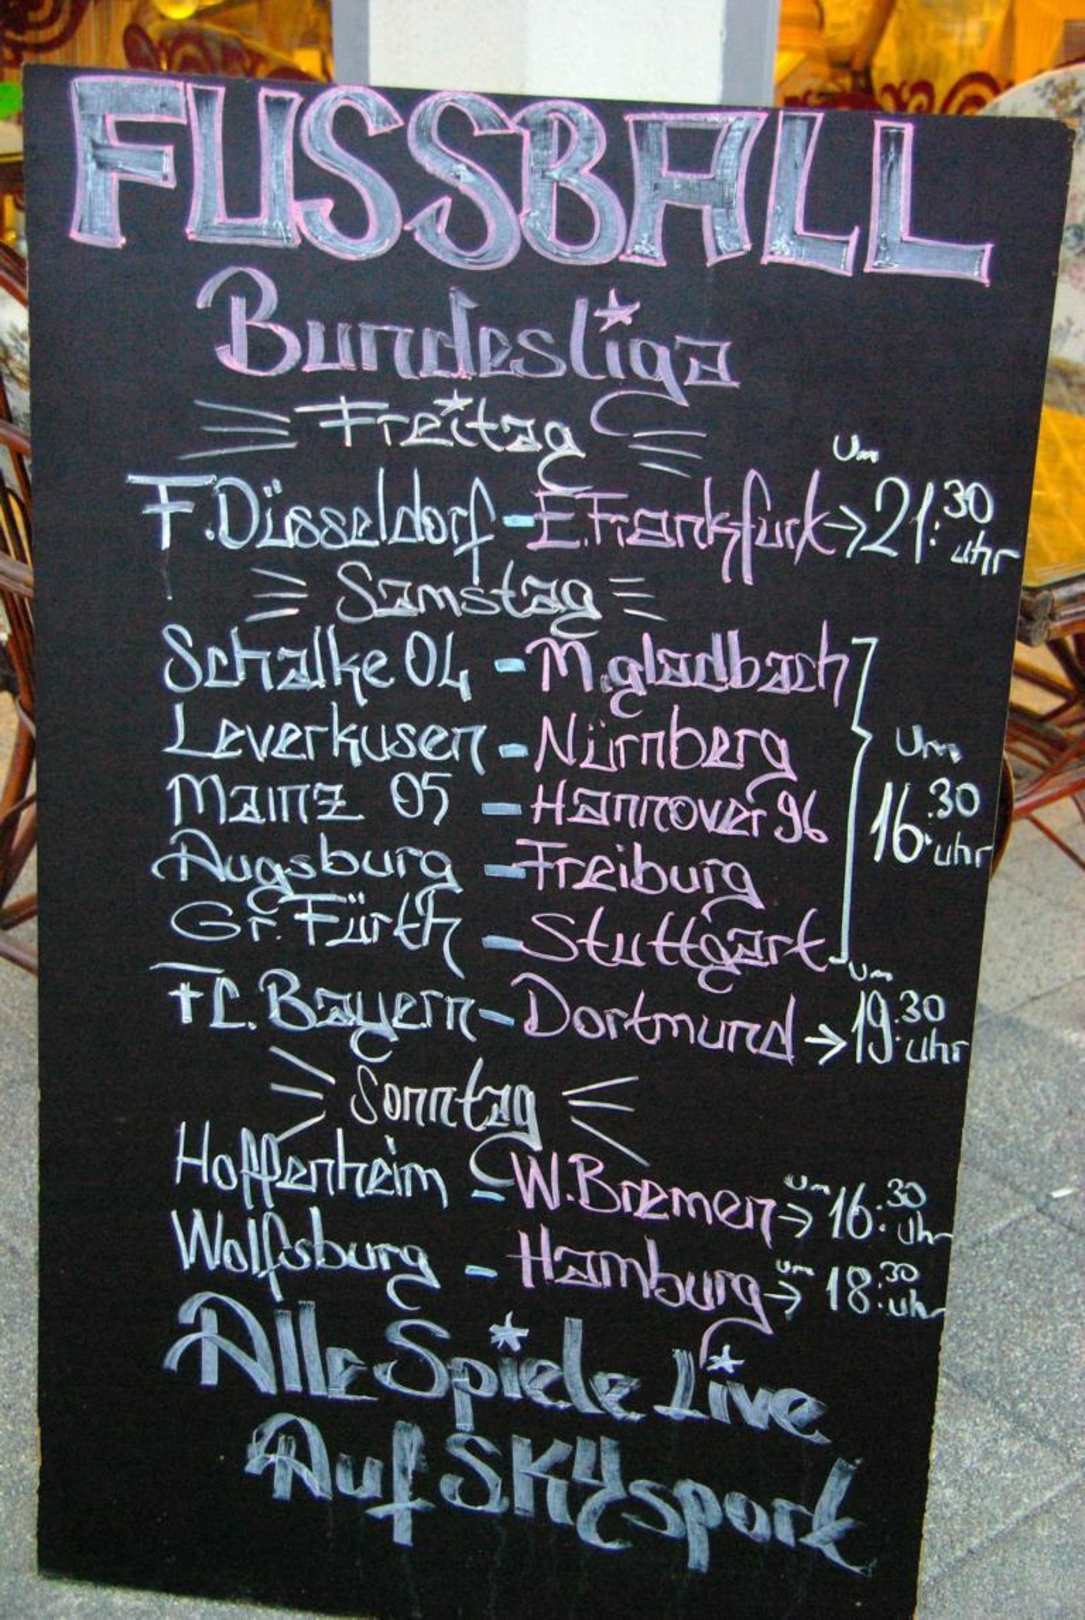 FUSSBALL
Bundesliga
Freitag
F. Düsseldorf - E. Frankfurt → um 21:30 uhr
Samstag
Schalke 04 - M.gladbach
Leverkusen - Nürnberg
Mainz 05 - Hannover 96
um 16:30 uhr
Augsburg - Freiburg
Gr. Fürth - Stuttgart
FC. Bayern - Dortmund → um 19:30 uhr
Sonntag
Hoffenheim - W. Bremen → um 16:30 uhr
Wolfsburg - Hamburg → um 18:30 uhr
Alle Spiele Live
Auf SKY sport